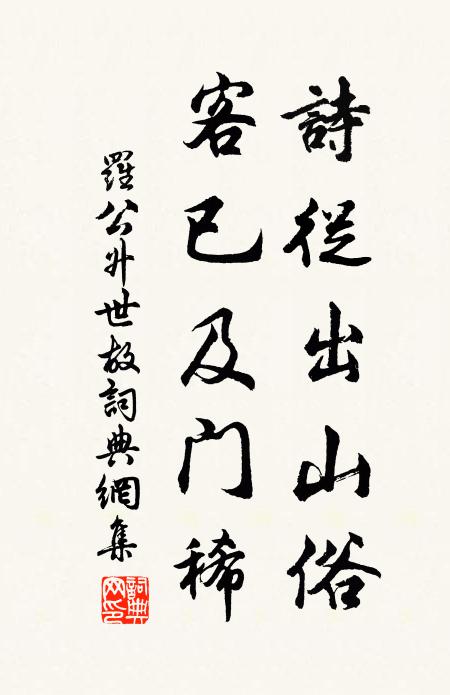 詩從出山俗
客已及门稀
羅公外世故詞典網集
詞典网印